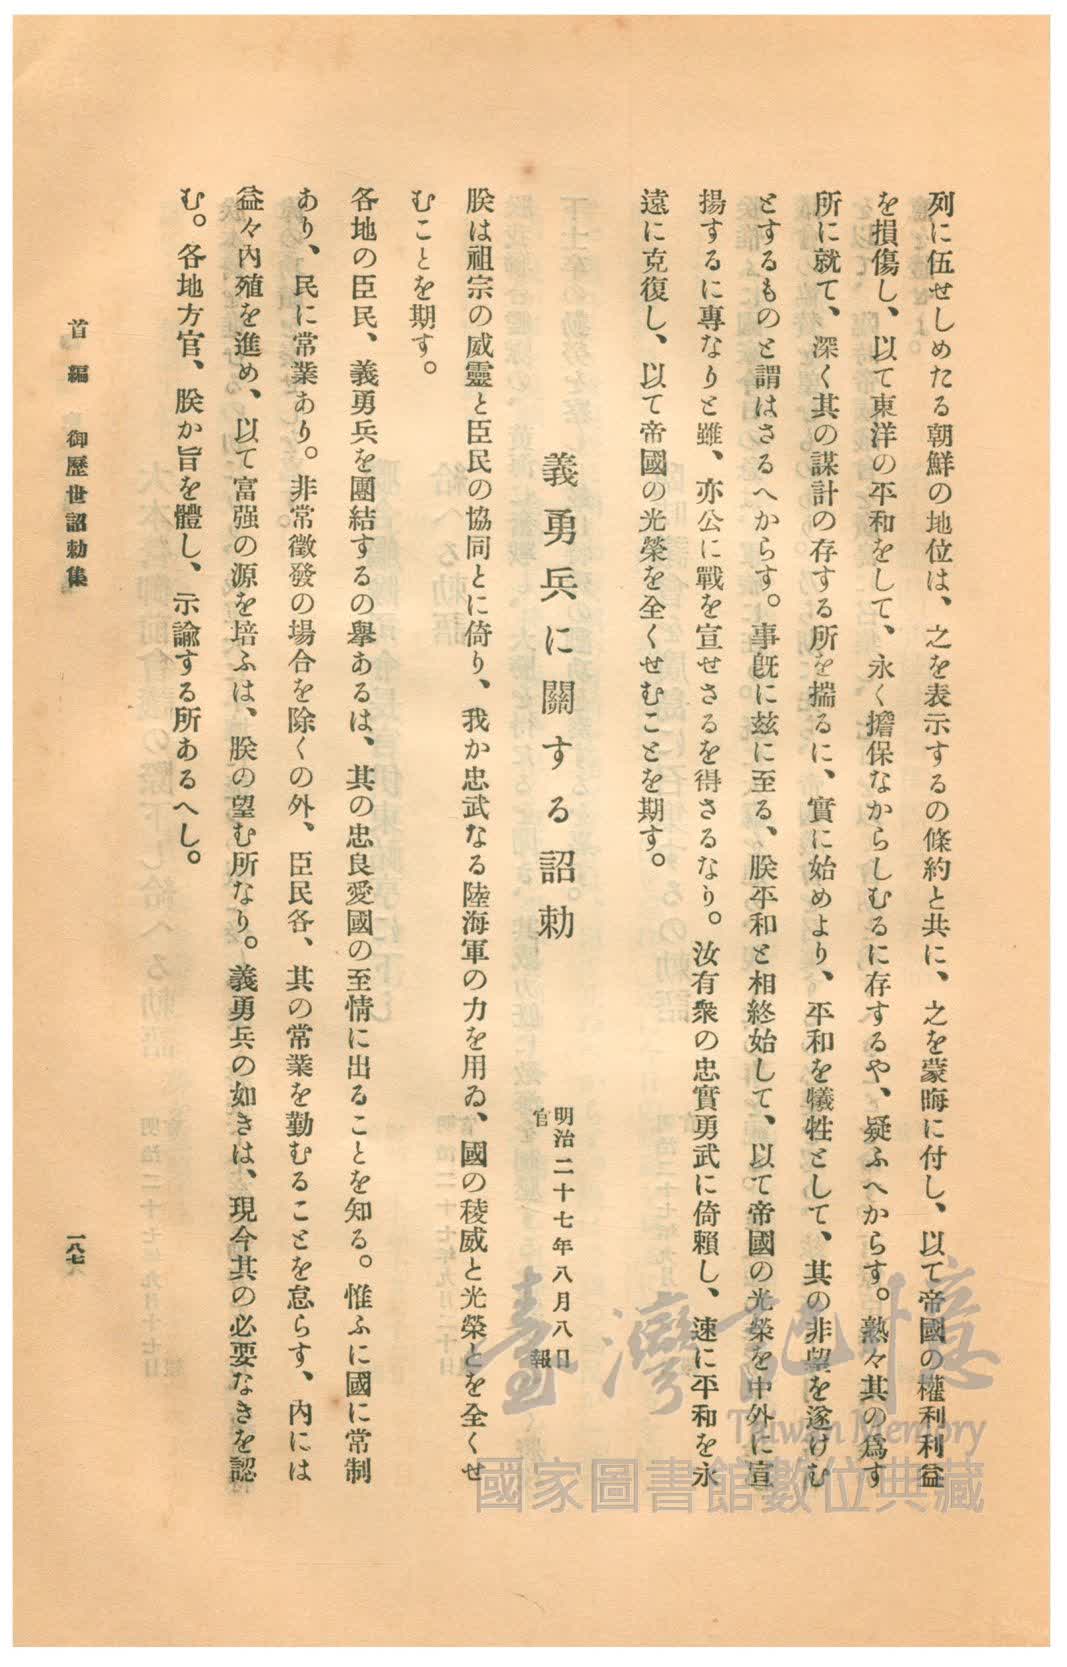 列に伍せしめたる朝鮮の地位は、之を表示するの條約と共に、之を蒙晦に付し、以て帝國の權利利益
を損傷し、以て東洋の平和をして、永く擔保なからしむるに存するや、疑ふへからす。熟々其の爲す
所に就て、深く其の謀計の存する所を揣るに、實に始めより、平和を犠牲として、其の非望を遂けむ
とするものと謂はさるへからす。事旣に玆に至る、朕平和と相終始して、以て帝國の光榮を中外に宣
揚するに專なりと雖、亦公に戰を宣せさるを得さるなり。汝有衆の忠實勇武に倚賴し、速に平和を永
遠に克復し、以て帝國の光榮を全くせむことを期す。
義勇兵に關する詔勅
明治二十七年八月八日
官報
朕は祖宗の威靈と臣民の協同とに倚り、我か忠武なる陸海軍の力を用ゐ、國の稜威と光榮とを全くせ
むことを期す。
各地の臣民、義勇兵を團結するの擧あるは、其の忠良愛國の至情に出ることを知る。惟ふに國に常制
あり、民に常業あり。非常徵發の場合を除くの外、臣民各、其の常業を勤むることを怠らす、內には
益々內殖を進め、以て富强の源を培ふは、朕の望む所なり。義勇兵の如きは、現今其の必要なきを認
む。各地方官、朕か旨を體し、示諭する所あるへし。
首編 御歷世詔勅集
一八七
臺灣記憶
Taiwan Memory
國家圖書館數位典藏